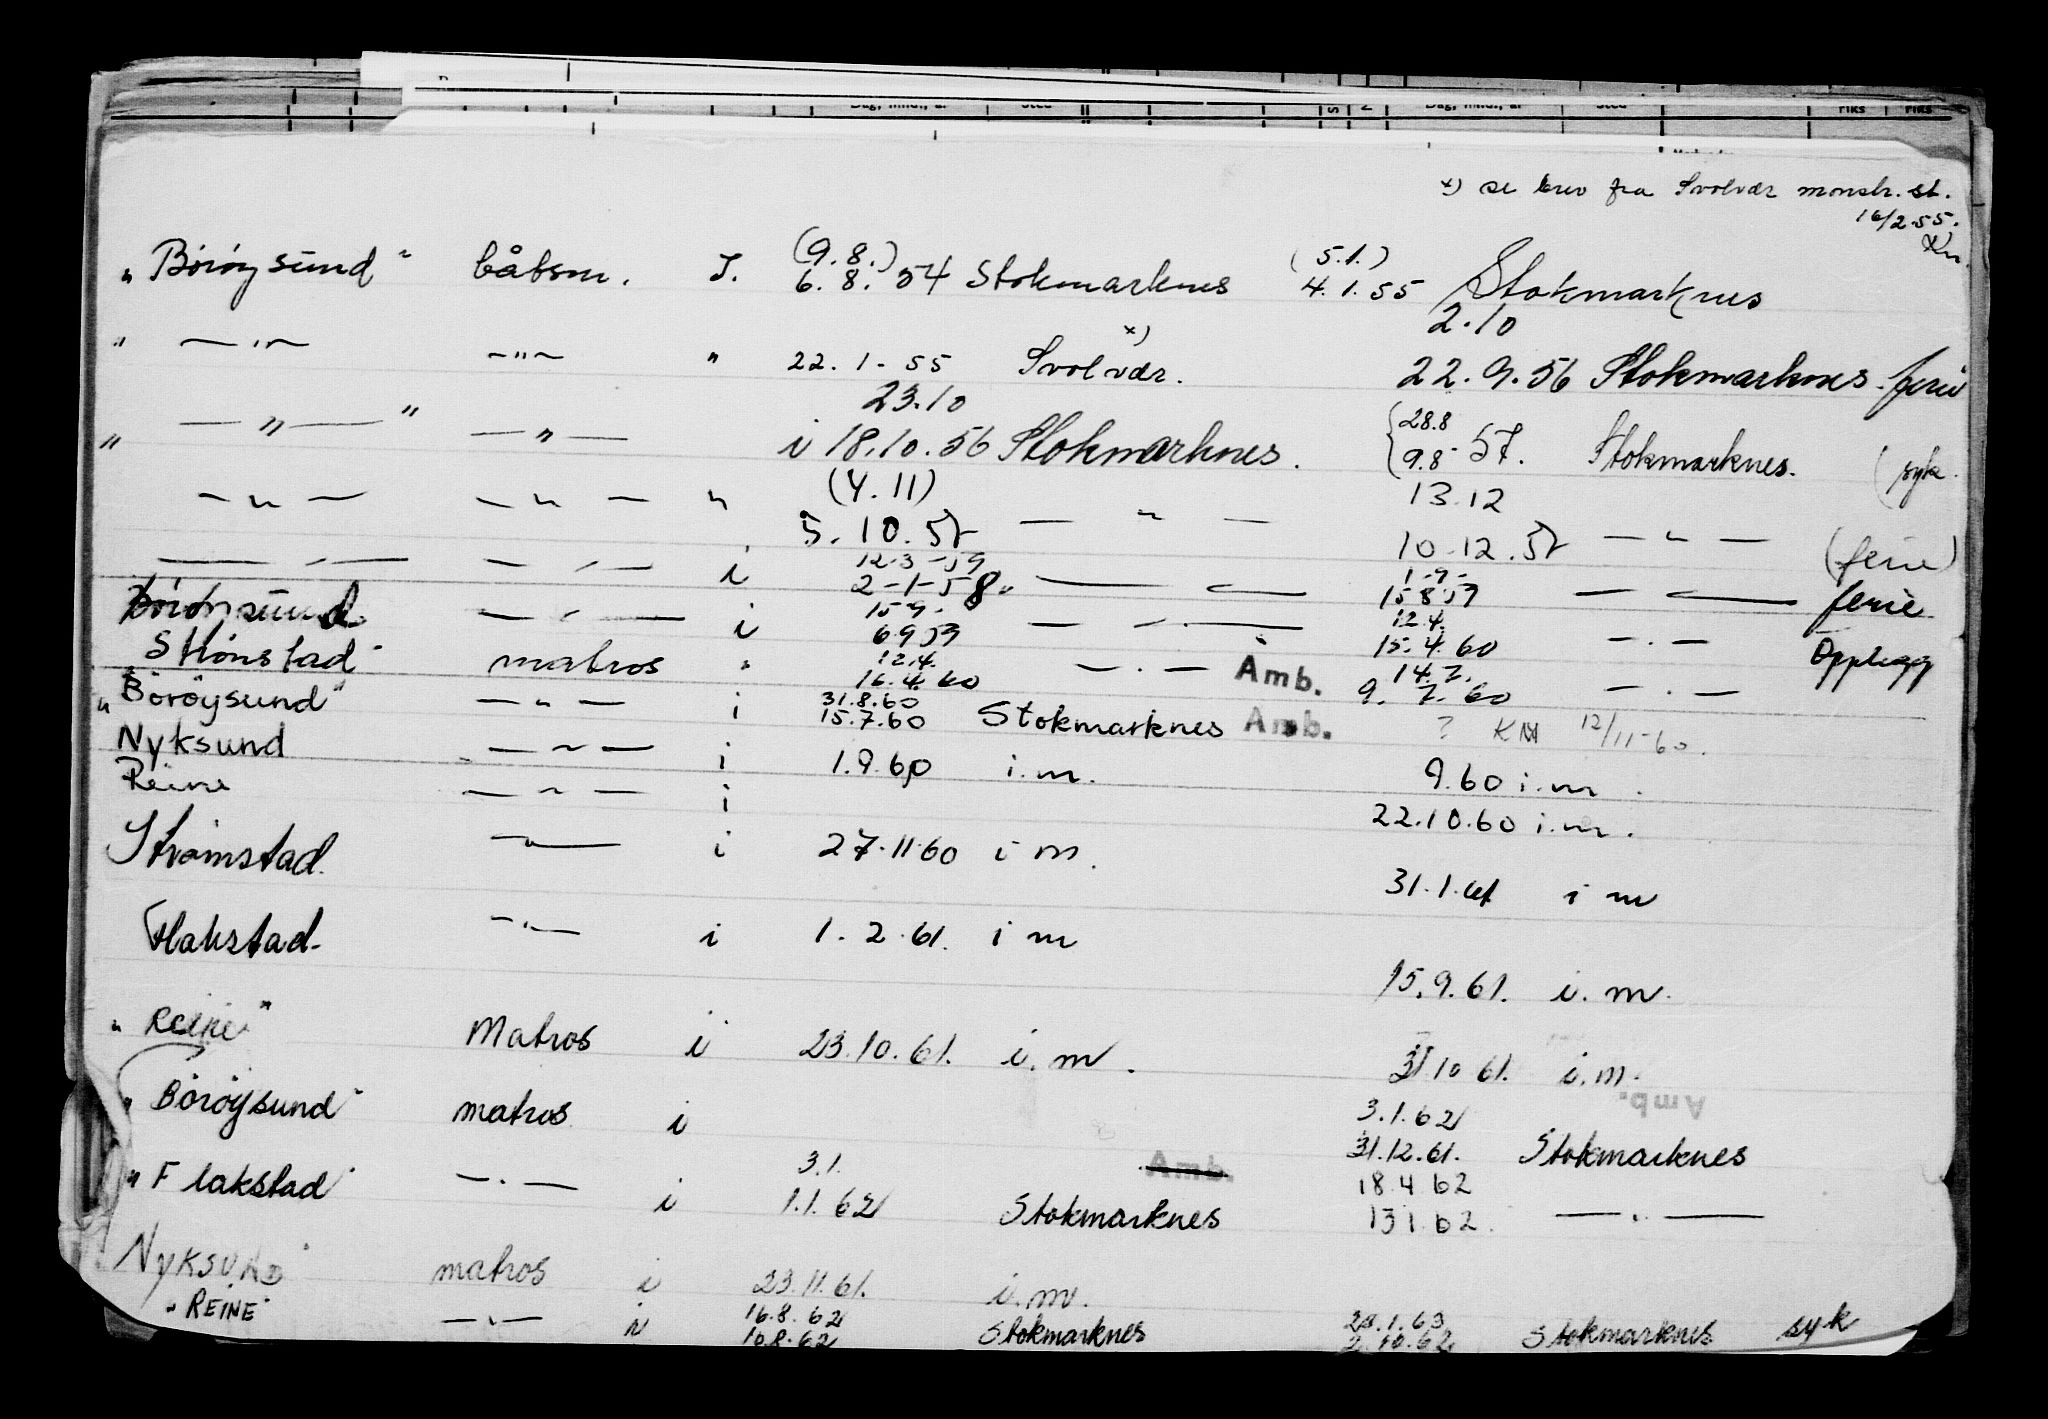 x) se brev fra Svolvær mønstr. st.
16/2-55.
(9.8.) (5.1.)
"Börøysund" båtsm. I. 6.8.54 Stokmarknes 4.1.55 Stokmarknes
2.10
x)
" —"— —"— " 22.1-55 Svolvær. 22.9.56 Stokmarknes. ferie
23.10 28.8
" —"— " —"— i 18.10.56 Stokmarknes. 9.8 57. Stokmarknes. (syk.
(4.11) 13.12
—"— —"— " 5.10.57 —"— 10.12.57 —"— (ferie)
12-3-59 1-9-
—"— —"— i 2-1-58. —"— 15 8 59 —"— ferie
15 9. 12.4.
Börøysund —"— i 6 9 59 —"— 15.4.60 —"— Opplegg
12.4. 14.7.
Strønstad" matros " 16.4.60 —"— Amb. 9.7.60 —"—
31.8.60
"Börøysund" —"— i 15.7.60 Stokmarknes Amb. ? KM 12/11-60.
Nyksund —"— i 1.9.60 i.m. 9.60 i.m.
Reine —"— i 22.10.60 i.m.
Strømstad. —"— i 27.11.60 i m. 31.1.61 i m
Flakstad. —"— i 1.2.61. i m 15.9.61. i.m.
"Reine" Matros i 23.10.61. i.m. 31 10 61. i.m.
Amb.
3.1.62
"Börøysund" matros i 31.12.61. Stokmarknes
3.1. Amb. 18.4 62
"Flakstad" —"— i 1.1.62 Stokmarknes 13 1.62. —"—
NYKSUND" matros i 23.11.61. i.m.
16.8.62 23.1.63
"REINE" —"— i 10.8.62 Stokmarknes 2.10.62 Stokmarknes syk